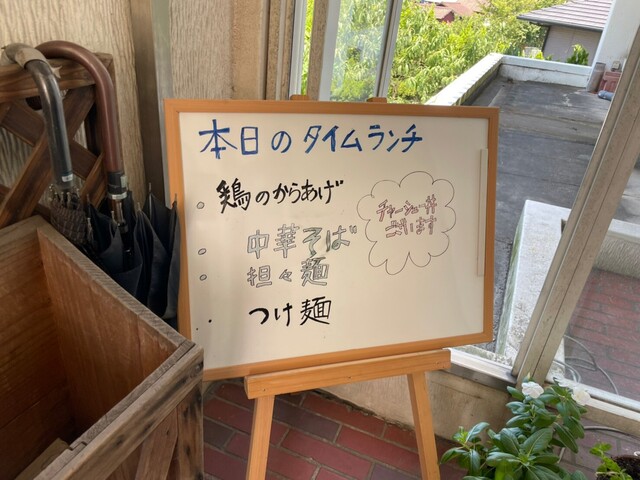 本日のタイムランチ
鶏のからあげ
中華そば
担々麺
つけ麺
チャーシュー丼
ございます